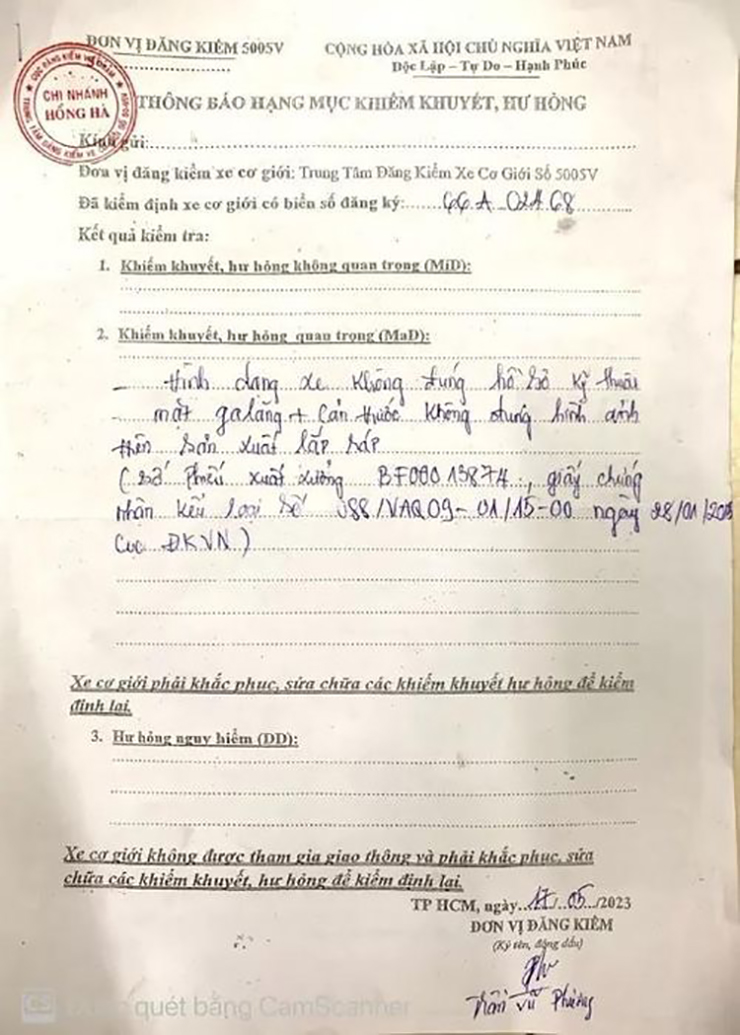 ĐƠN VỊ ĐĂNG KIỂM 5005V
CỘNG HÒA XÃ HỘI CHỦ NGHĨA VIỆT NAM
Độc Lập – Tự Do – Hạnh Phúc
CHI NHÁNH
HỒNG HÀ
THÔNG BÁO HẠNG MỤC KHIẾM KHUYẾT, HƯ HỎNG
Kính gửi:
Đơn vị đăng kiểm xe cơ giới: Trung Tâm Đăng Kiểm Xe Cơ Giới Số 5005V
Đã kiểm định xe cơ giới có biển số đăng ký:
Kết quả kiểm tra:
1. Khiếm khuyết, hư hỏng không quan trọng (MiD):
2. Khiếm khuyết, hư hỏng quan trọng (MaD):
_ Hình dạng xe không đúng hồ sơ kỹ thuật
mặt galăng + Cản trước không đúng hình ảnh
trên bản xuất lắp ráp
(số Phiếu xuất xưởng giấy chứng
nhận kiểu loại số /VAQ09-01/15-00 ngày 28/01/
Cục ĐKVN)
Xe cơ giới phải khắc phục, sửa chữa các khiếm khuyết hư hỏng để kiểm
định lại.
3. Hư hỏng nguy hiểm (DD):
Xe cơ giới không được tham gia giao thông và phải khắc phục, sửa
chữa các khiếm khuyết, hư hỏng để kiểm định lại.
TP HCM, ngày 17/05/2023
ĐƠN VỊ ĐĂNG KIỂM
(Ký tên, đóng dấu)
Trần Vũ Phương
CS quét bằng CamScanner